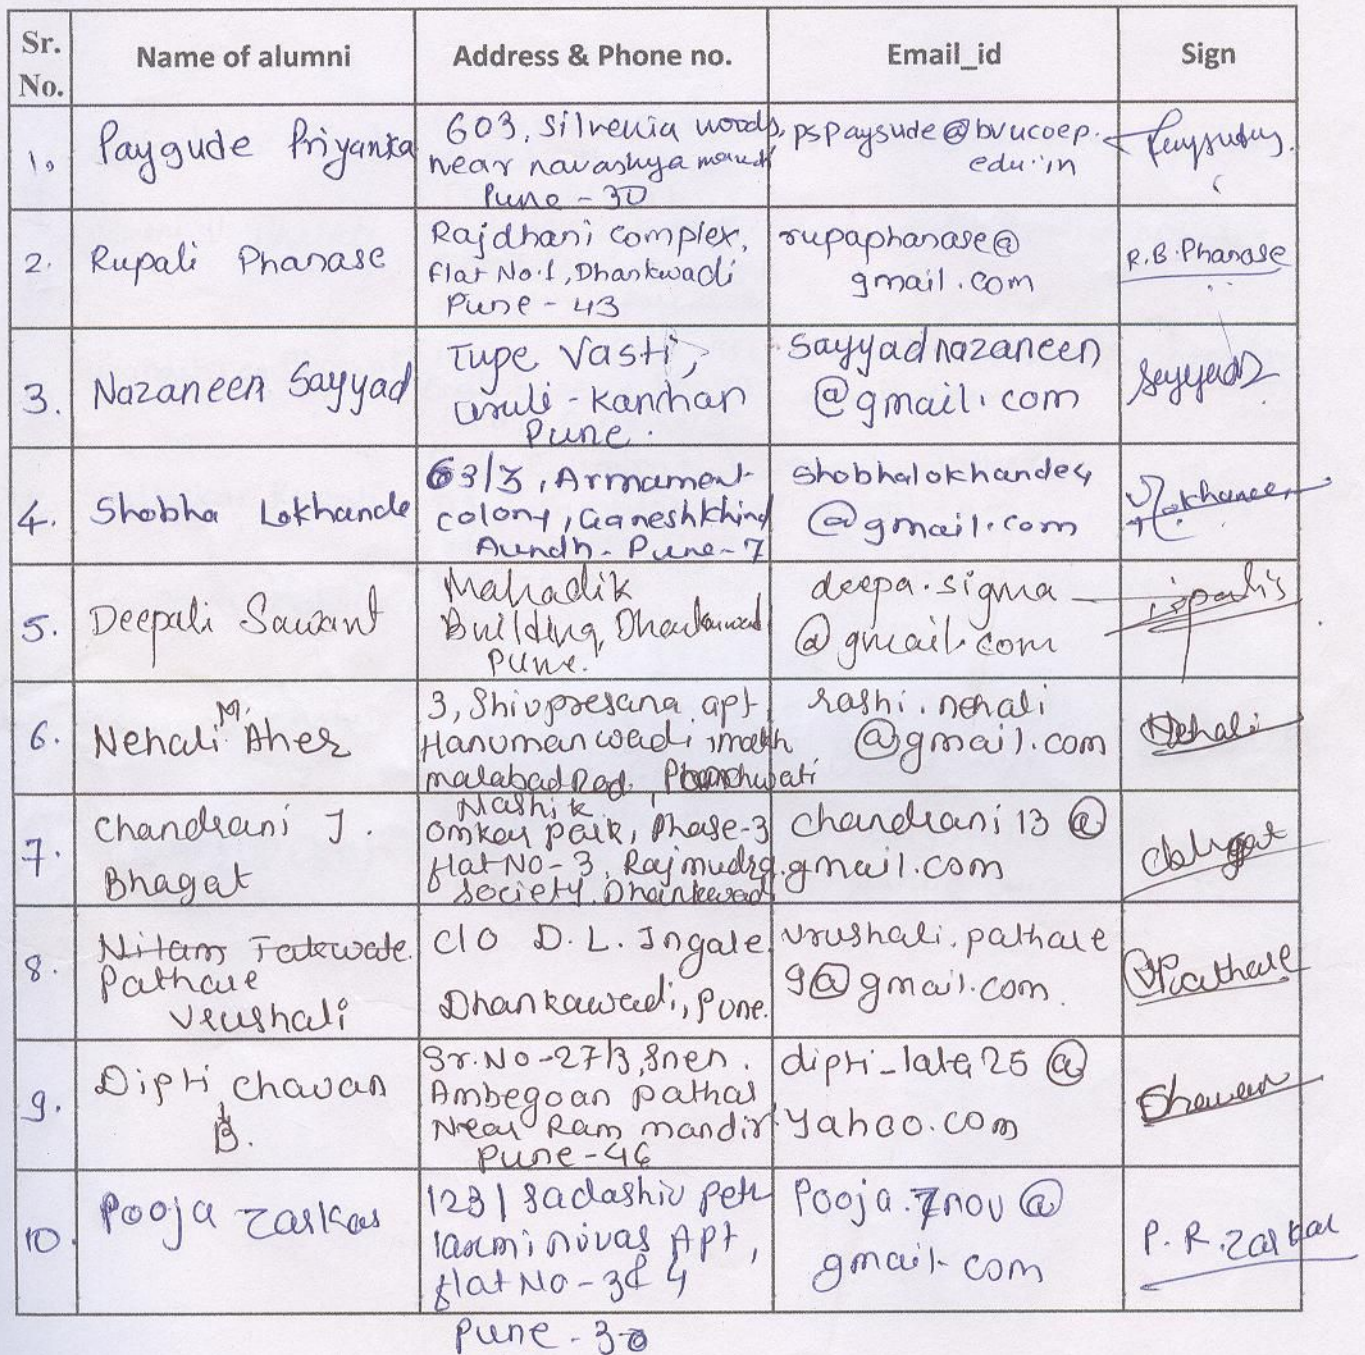 Sr. No. Name of alumni Address & Phone no. Email_id Sign
1, Paygude Priyanka
603, Silvenia woods,
near navashya
Pune - 30
pspaysude@bvucoep.
edu.in
2. Rupali Phanase
Rajdhani complex,
flat No.1, Dhankwadi
Pune - 43
rupaphanase@
gmail.com
R.B.Phanase
3. Nazaneen Sayyad
Tupe Vasti,
uruli - Kanchan
Pune.
sayyadnazaneen
@gmail.com
4. Shobha Lokhande
63/3, Armament
colony, Ganeshkhind
Aundh - Pune - 7
shobhalokhande4
@gmail.com
5. Deepali Sawant
Mahadik
Building,
Pune.
deepa.sigma
@gmail.com
6. Nehali M. Aher
3, Shivpresana apt
Hanuman wadi
malabad Rod,
Nashik
rashi.nehali
@gmail.com
Nehali
7. Chandrani J.
Bhagat
Omkar park, Phase-3
flat No-3, Rajmudra
Society, Dhankewad
chandrani13@
gmail.com
8. Pathare
Vrushali
C/O D.L. Ingale
Dhankawadi, Pune.
vrushali.pathare
9@gmail.com
VPathare
9. Dipti B. Chavan
Sr.No-27/3,
Ambegoan pathar
Near Ram mandir
Pune-46
dipti_late25@
yahoo.com
10. Pooja Zarkar
123/ Sadashiv peth
laxmi nivas Apt,
flat No-3& 4
Pune - 30
Pooja.7nov@
gmail.com
P.R.Zarkar